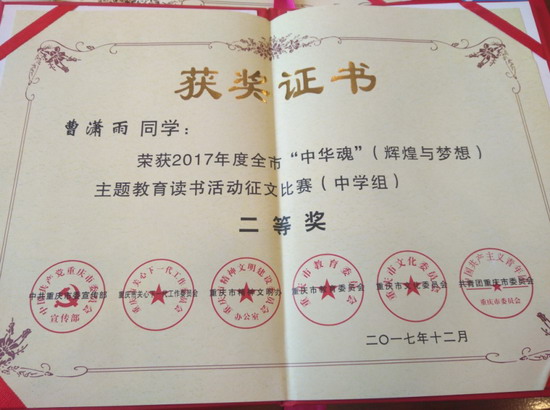 获奖证书
曹潇雨 同学：
荣获2017年度全市“中华魂”（辉煌与梦想）
主题教育读书活动征文比赛（中学组）
二等奖
中共重庆市委宣传部 重庆市关心下一代工作委员会 重庆市精神文明办 重庆市教育委员会 重庆市文化委员会 共青团重庆市委员会
宣传部
办公室
重庆市委员会
二〇一七年十二月